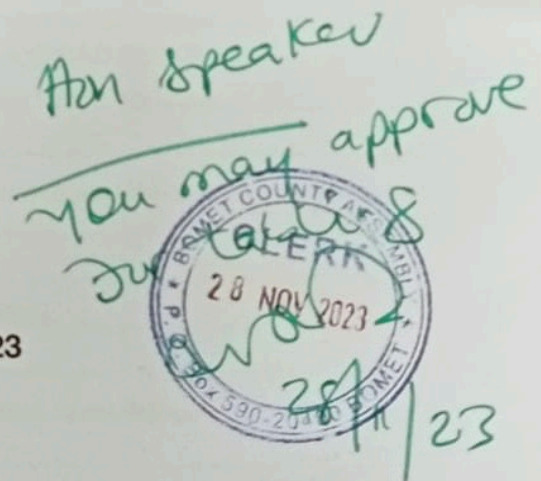 Hon Speaker
You may approve
for tabling
BOMET COUNTY ASSEMBLY
CLERK
28 NOV 2023
23
* P.O. Box 590-20400 BOMET *
28/11/23